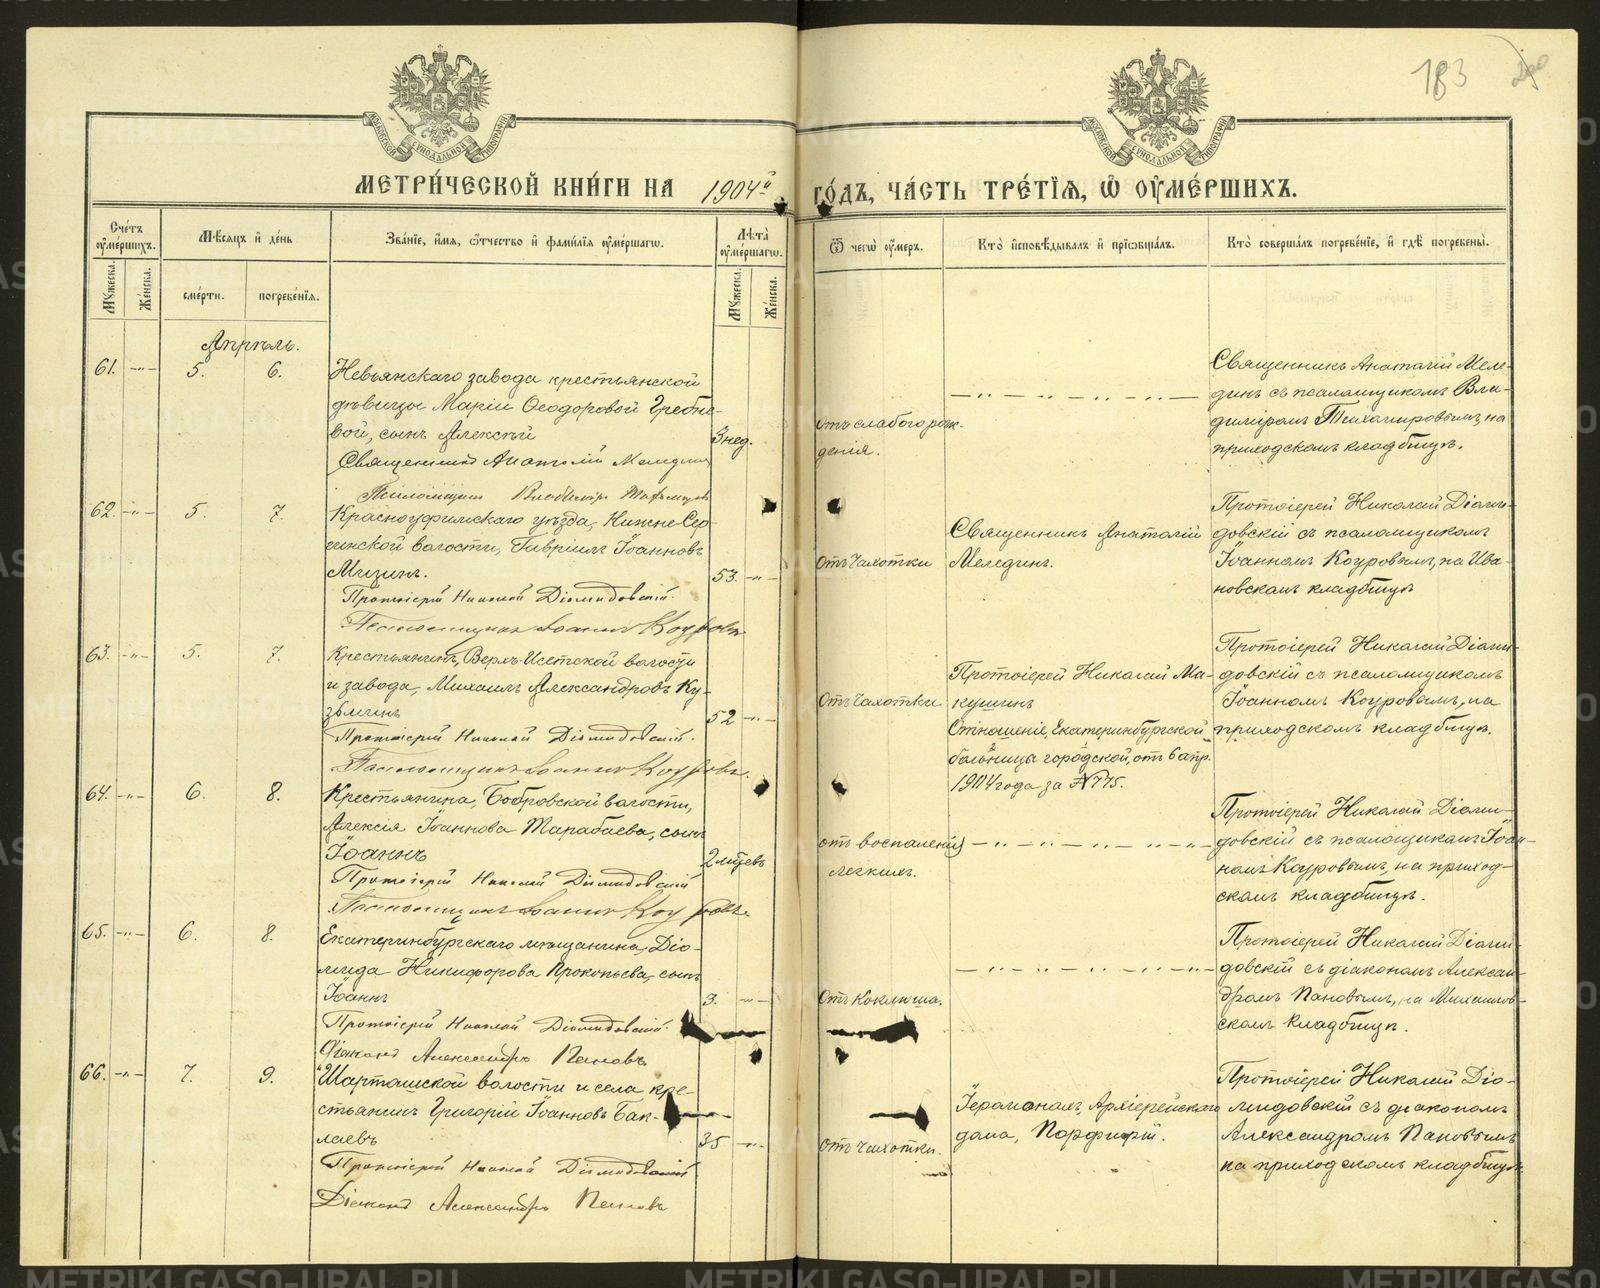 183
МОСКОВСКОЙ СѴНОДАЛЬНОЙ ТИПОГРАФІИ
МОСКОВСКОЙ СѴНОДАЛЬНОЙ ТИПОГРАФІИ
МЕТРИ́ЧЕСКОЙ КНИ́ГИ НА 1904й ГО́ДЪ, ЧА́СТЬ ТРЕ́ТІѦ, Ѡ҆ ОУ҆МЕ́РШИХЪ.
Сче́тъ оу҆ме́ршихъ.
Мѣ́сяцъ и҆ де́нь
Зва́нїе, и҆́мя, ѻ҆́тчество и҆ фами́лїя оу҆ме́ршагѡ.
Лѣ́та̀ оу҆ме́ршагѡ.
Ѿ чегѡ̀ оу҆́меръ.
Кто̀ и҆сповѣ́дывалъ и҆ прїѡбща́лъ.
Кто̀ соверша́лъ погребе́нїе, и҆ гдѣ̀ погребены̀.
Мꙋ́жеска.
Же́нска.
сме́рти.
погребе́нїя.
Мꙋ́жеска.
Же́нска.
Апрѣль.
61. -„- 5. 6.
Невьянскаго завода крестьянской
дѣвицы Маріи Ѳеодоровой Гребне-
вой, сынъ Алексѣй
3 нед.
Священникъ Анатолій Мелединъ
Псаломщикъ Владиміръ
отъ слабаго рож-
денія.
Священникъ Анатолій Меле-
динъ съ псаломщикомъ Вла-
диміромъ Тихомировымъ, на
приходскомъ кладбищѣ.
62. -„- 5. 7.
Красноуфимскаго уѣзда, Нижне-Сер-
гинской волости, Гавріилъ Іоанновъ
Мизинъ.
53. -„-
Протоіерей Николай Діомидовскій.
Псаломщикъ Іоаннъ Коуровъ
Отъ Чахотки
Священникъ Анатолій
Мелединъ.
Протоіерей Николай Діоми-
довскій съ псаломщикомъ
Іоанномъ Коуровымъ, на Ива-
новскомъ кладбищѣ
63. -„- 5. 7.
Крестьянинъ, Верхъ-Исетской волости
и завода, Михаилъ Александровъ Ку-
зьминъ
52 -„-
Протоіерей Николай Діомидовскій.
Псаломщикъ Іоаннъ Коуровъ.
Отъ Чахотки
Протоіерей Николай Ма-
кушинъ
Отношеніе, Екатеринбургской
больницы городской, отъ 6 апр.
1904 года за № 175.
Протоіерей Николай Діоми-
довскій съ псаломщикомъ
Іоанномъ Коуровымъ, на
приходскомъ кладбищѣ.
64. -„- 6. 8.
Крестьянина, Бобровской волости,
Алексія Іоаннова Тарабаева, сынъ
Іоаннъ
2 мѣсевъ
Протоіерей Николай Діомидовскій
Псаломщикъ Іоаннъ Коуровъ.
отъ воспаленія
легкихъ.
Протоіерей Николай Діоми-
довскій съ псаломщикомъ Іоан-
номъ Коуровымъ, на приход-
скомъ кладбищѣ.
65. -„- 6. 8.
Екатеринбургскаго мѣщанина, Діо-
мида Никифорова Прокопьева, сынъ
Іоаннъ
3. -„-
Протоіерей Николай Діомидовскій.
Діаконъ Александръ Пановъ
Отъ Коклюша.
Протоіерей Николай Діоми-
довскій съ діакономъ Алексан-
дромъ Пановымъ, на Михайлов-
скомъ кладбищѣ.
66. -„- 7. 9.
Шарташской волости и села кре-
стьянинъ Григорій Іоанновъ Бак-
лаевъ
35 -„-
Протоіерей Николай Діомидовскій
Діаконъ Александръ Пановъ
Отъ Чахотки.
Іеромонахъ Архіерейскаго
дома, Порфирій.
Протоіерей Николай Діо-
мидовскій съ діакономъ
Александромъ Пановымъ
на приходскомъ кладбищѣ
METRIKI.GASO-URAL.RU